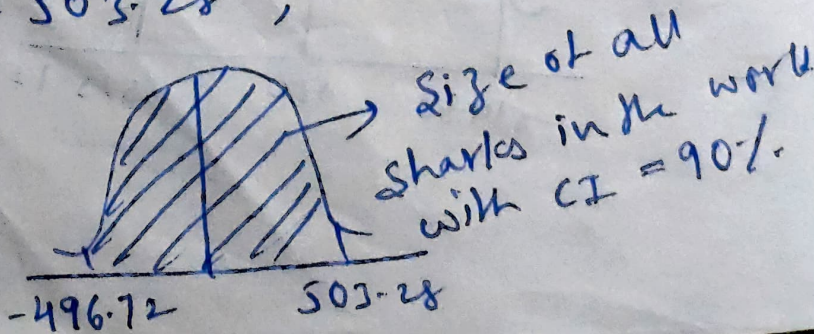 503.28 ,
Size of all
sharks in the world
with CI = 90%.
-496.72
503.28